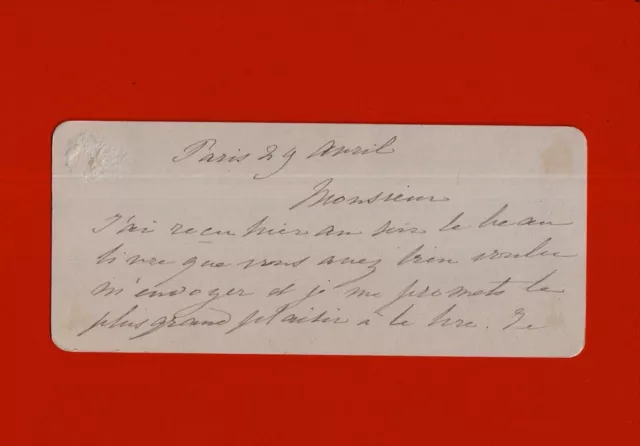 Paris 29 Avril
Monsieur
J'ai reçu hier au soir le beau
livre que vous avez bien voulu
m'envoyer et je me promets le
plus grand plaisir à le lire. Je